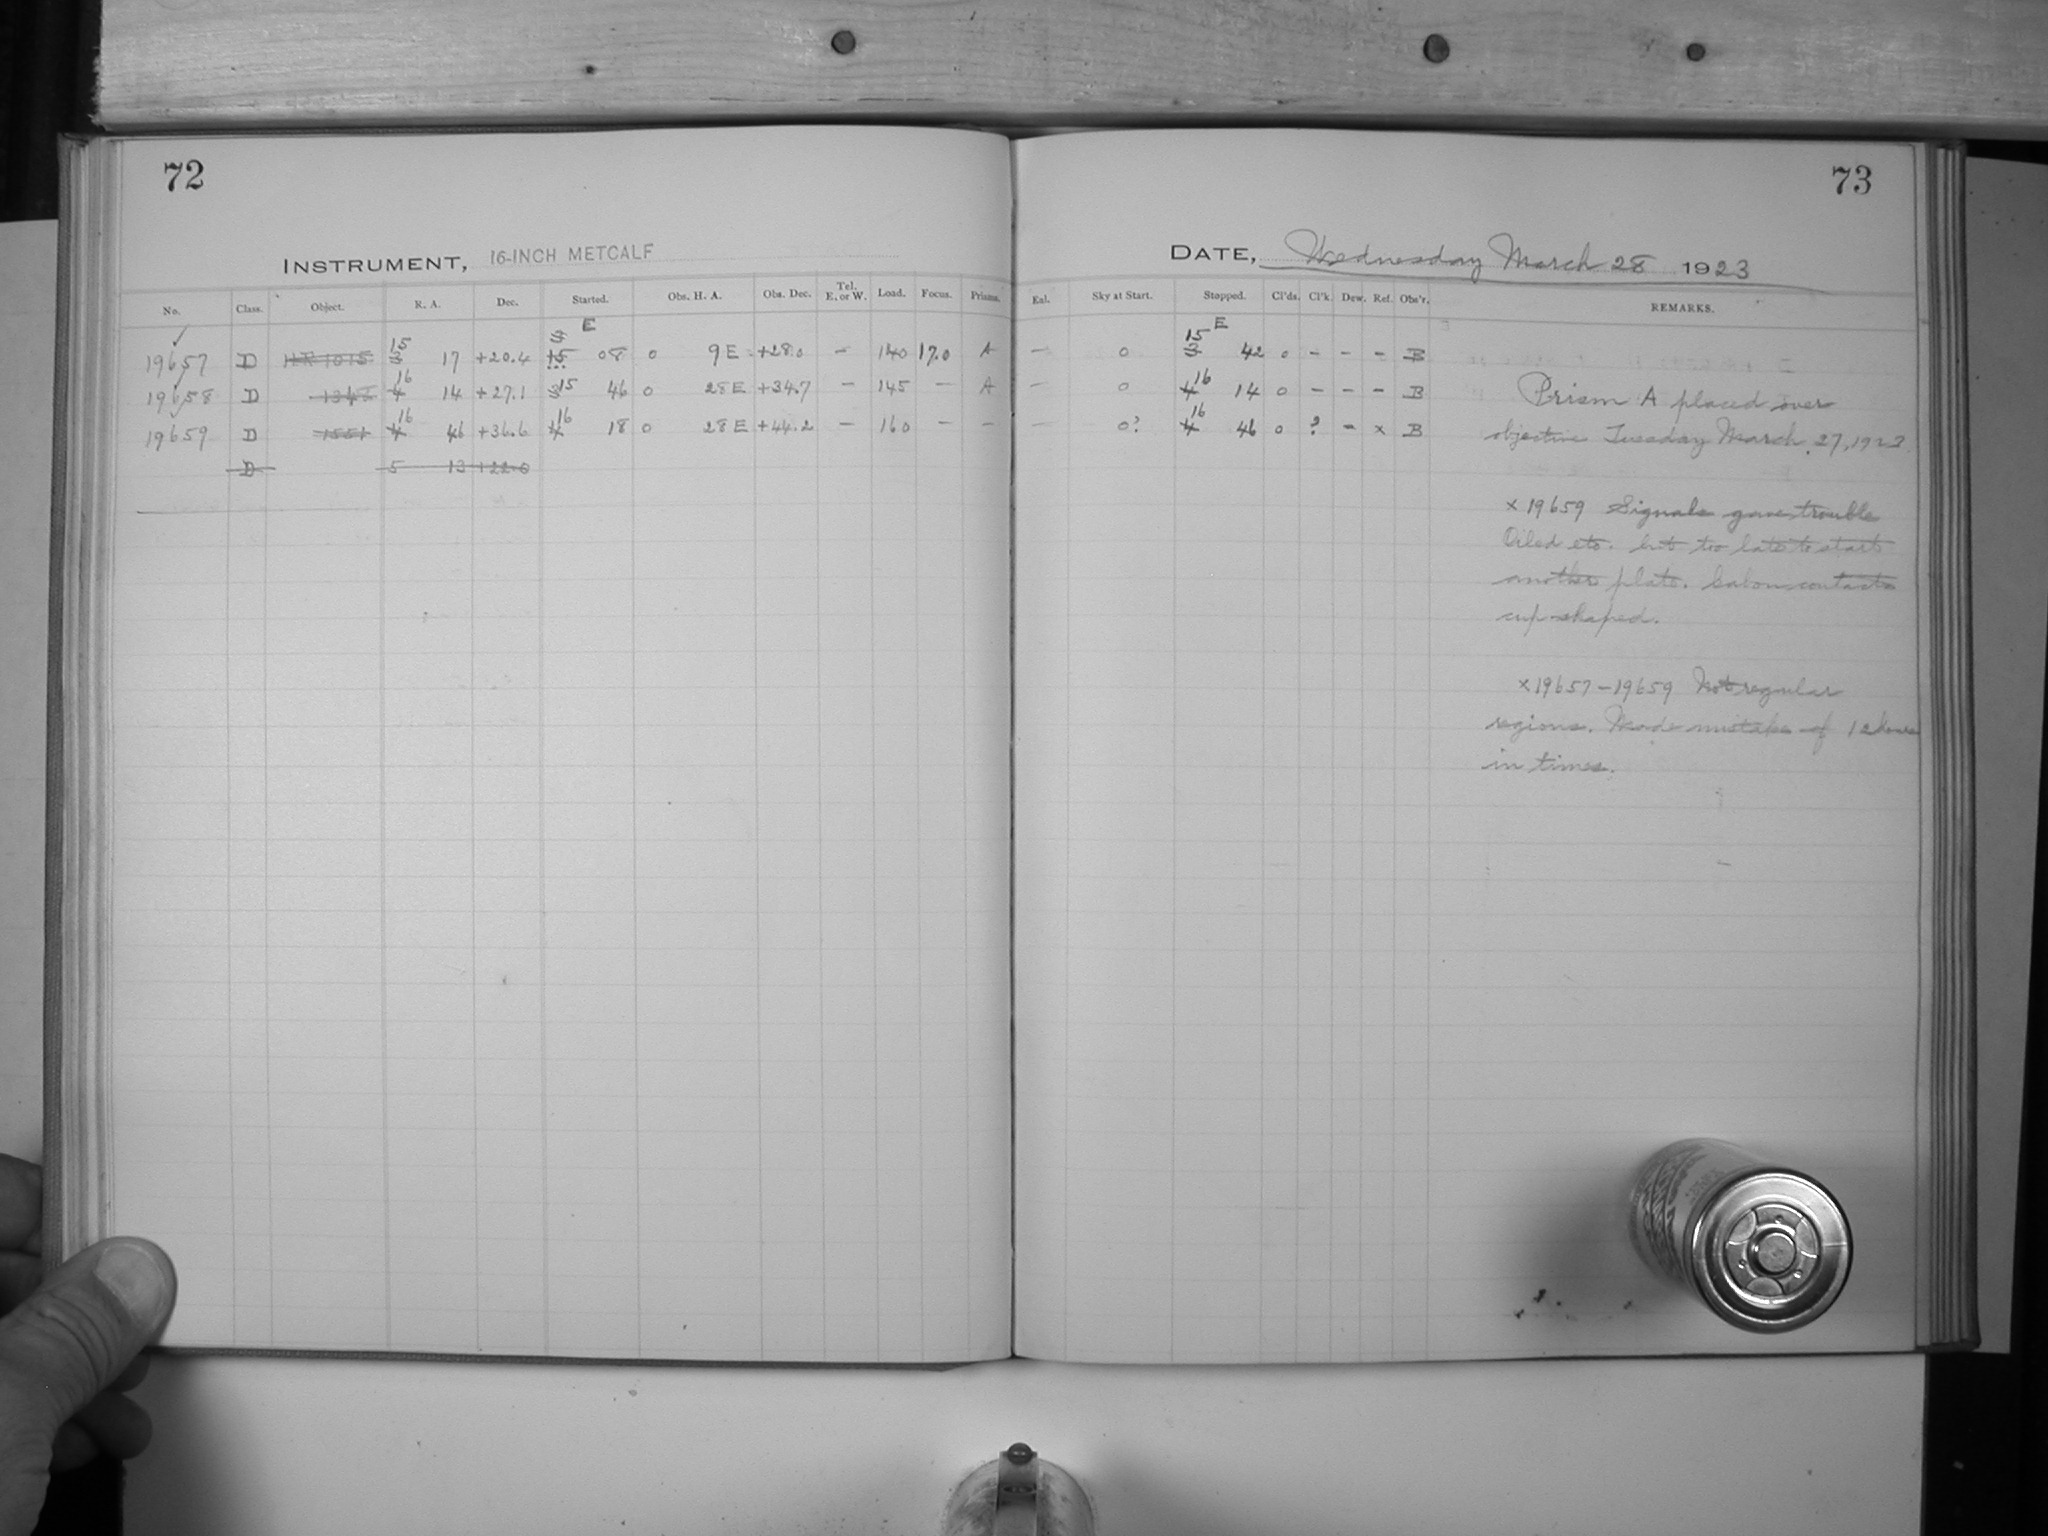 72
73
INSTRUMENT, 16-INCH METCALF
DATE, Wednesday March 28 1923
No. Class. Object. R. A. Dec. Started. Obs. H. A. Obs. Dec. Tel. E. or W. Load. Focus. Prisms. Eal. Sky at Start. Stopped. Cl'ds. Cl'k. Dew. Ref. Obs'r. REMARKS.
E E
19657 D HR 1015 3 15 17 +20.4 15 3 08 0 9 E +28.0 – 140 17.0 A – 0 3 15 42 0 – – – B
19658 D 1348 4 16 14 +27.1 3 15 46 0 28 E +34.7 – 145 – A – 0 4 16 14 0 – – – B
19659 D 1551 4 16 46 +36.6 4 16 18 0 28 E +44.2 – 160 – – – 0? 4 16 46 0 ? – x B
D 5 13 +22.0
Prism A placed over
objective Tuesday March 27, 1923.
x 19659 Signals gave trouble
Oiled etc. but too late to start
another plate. contacts
cup-shaped.
x 19657 – 19659 Not regular
regions. Made mistake of 12 hours
in times.